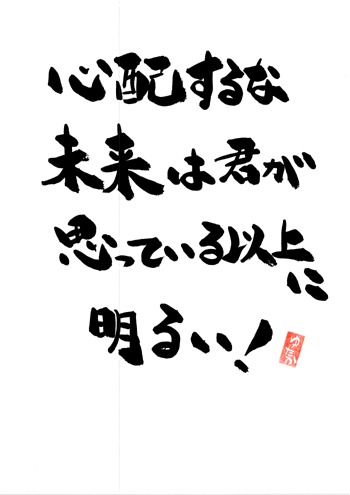 心配するな
未来は君が
思っている以上に
明るい!
ゆたか